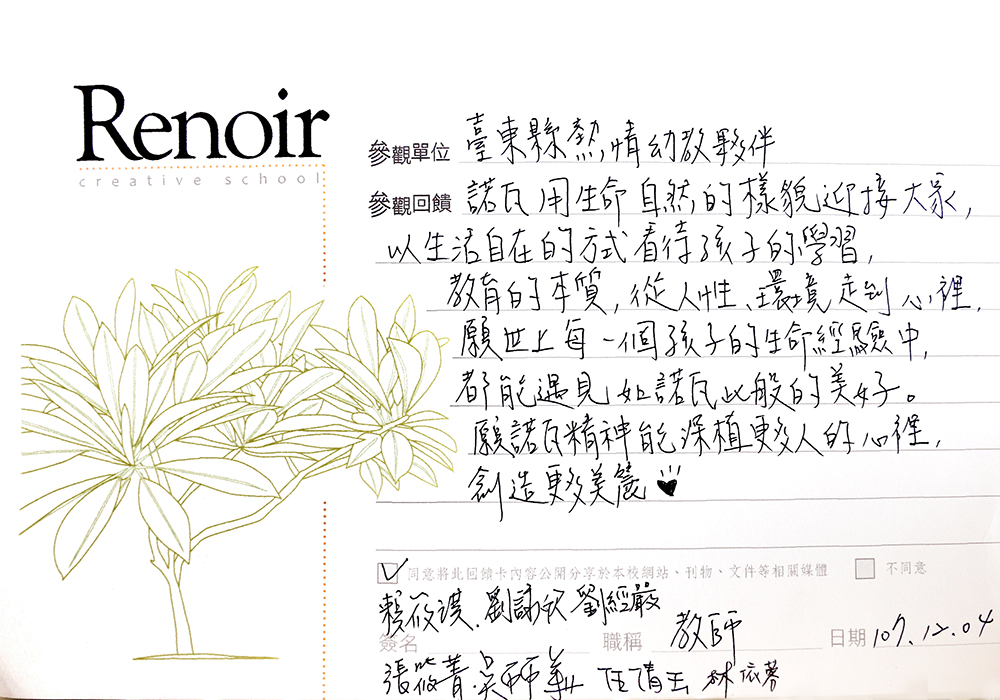 Renoir
creative school
參觀單位 臺東縣熱情幼教夥伴
參觀回饋 諾瓦用生命自然的樣貌迎接大家,
以生活自在的方式看待孩子的學習,
教育的本質,從人性、環境走到心裡,
願世上每一個孩子的生命經驗中,
都能遇見如諾瓦此般的美好。
願諾瓦精神能深植更多人的心裡,
創造更多美
同意將此回饋卡內容公開分享於本校網站、刊物、文件等相關媒體 不同意
賴筱淇.劉詠欣 劉經嚴
簽名 職稱 教師 日期 107.12.04
張筱菁 林依蓉